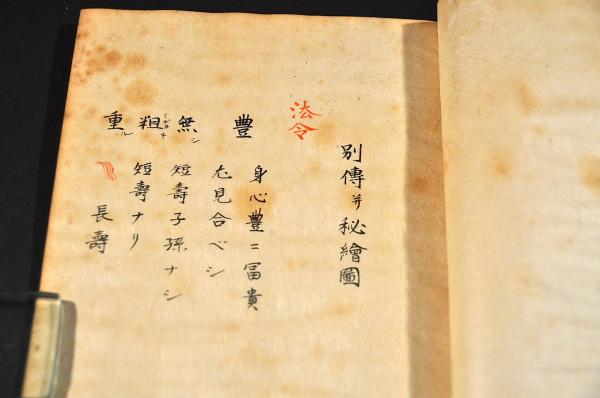 別傳并秘繪圖
法令
豊 身心豊ニ冨貴
見合ベシ
無シ 短壽子孫ナシ
粗 短壽ナリ
重ル 長壽